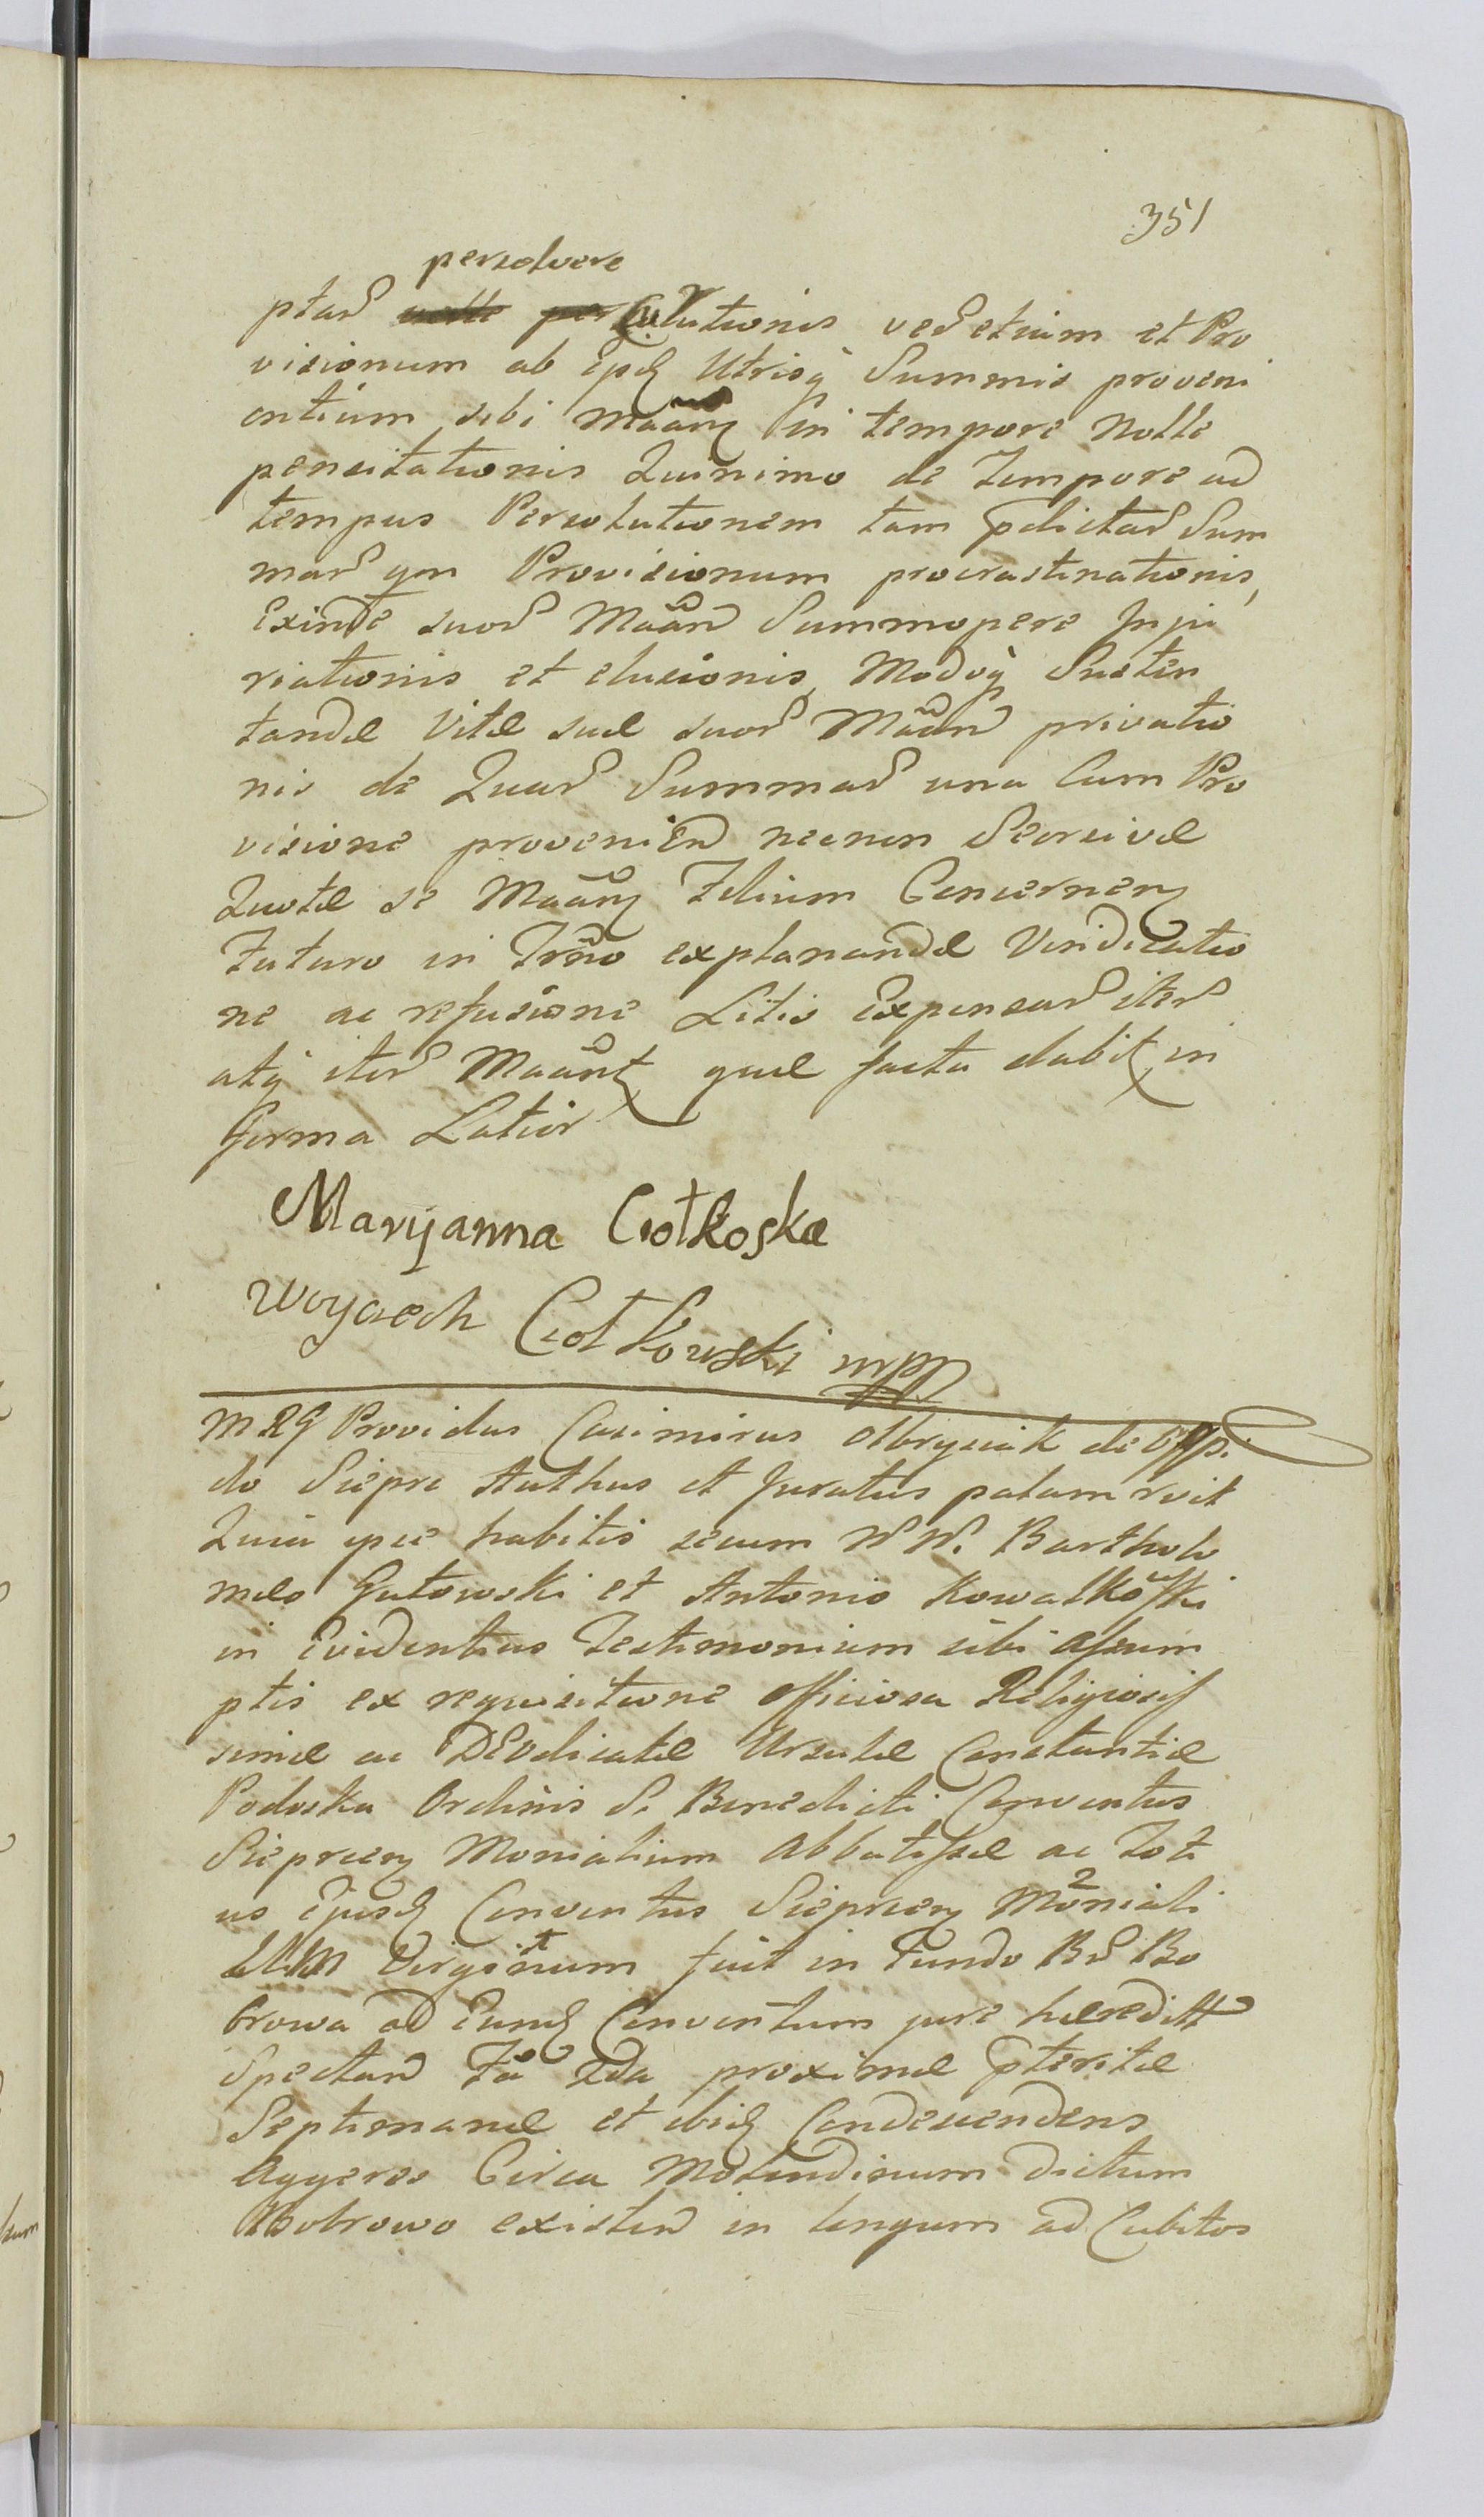 351
persolvere
ptar nolle per solutionis ved etium et Pro
visionum ab ipsis Utrisq Summis proveni
entium sibi Maan in tempore Nolle
pensitationis Quinimo de Tempore ad
tempus Persolutionem tam pdictar Sum
mar qm Provisionum procrastinationis,
Exinde suor Maan Summopere Inju
riationis et elusionis, Modoq Susten
tandæ Vitæ suæ suor Maan privatio
nis de Quar Summar una Cum Pro
visione provenien necnon Seorsivæ
Quotæ se Maan Telium Concernen
Futuro in Trno explanandæ Vindicatio
ne ac refusione Litis Expensar iter
atq iter Maant quæ facta dabit in
forma Latior
Maryanna Ciołkoska
Woyciech Ciołkowski mpp
MRG Providus Casimirus Olbrysiak de Oppi
do Siepre Authus et Juratus palam rvit
Quia ipse habitis secum W W. Bartholo
mæo Gutowski et Antonio Kowalkowski
in Evidentius Testimonium sibi assum
ptis ex requisitione officiosa Religiosis
simæ ac DEvdicatæ Ursulæ Constantiæ
Podoska Ordinis S. Benedicti Conventus
Siepreen Monialium Abbatissæ ac Toti
us Ejusd Conventus Siepreen Moniali
um Virginum fuit in Fundo Br Bo
browa ad Eund Conventum jure hæreditt
Spectan Fa 2da proximæ pteritæ
Septimanæ et ibid Condescendens
Aggeres Circa Molendinum dictum
Bobrowo existen in longum ad Cubitos